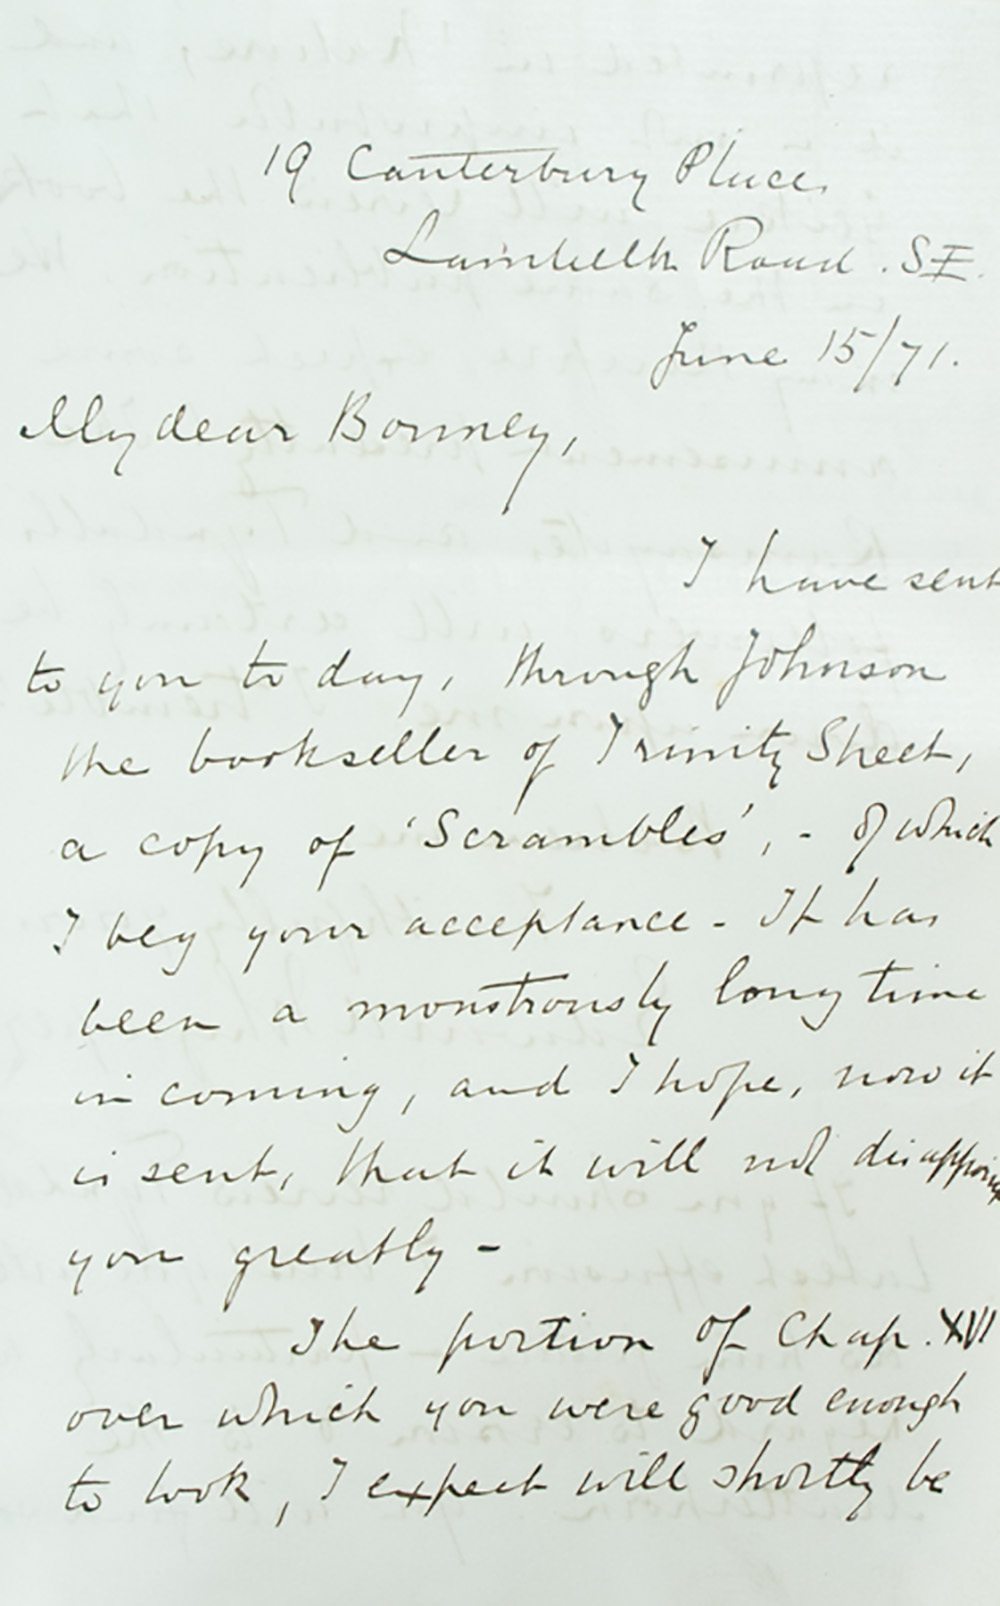 19 Canterbury Place,
Lambeth Road. SE.
June 15/71.
My dear Bonney,
I have sent
to you to day, through Johnson
the bookseller of Trinity Street,
a copy of 'Scrambles', - of which
I beg your acceptance - It has
been a monstrously long time
in coming, and I hope, now it
is sent, that it will not disappoint
you greatly -
The portion of Chap. XVI
over which you were good enough
to look, I expect will shortly be